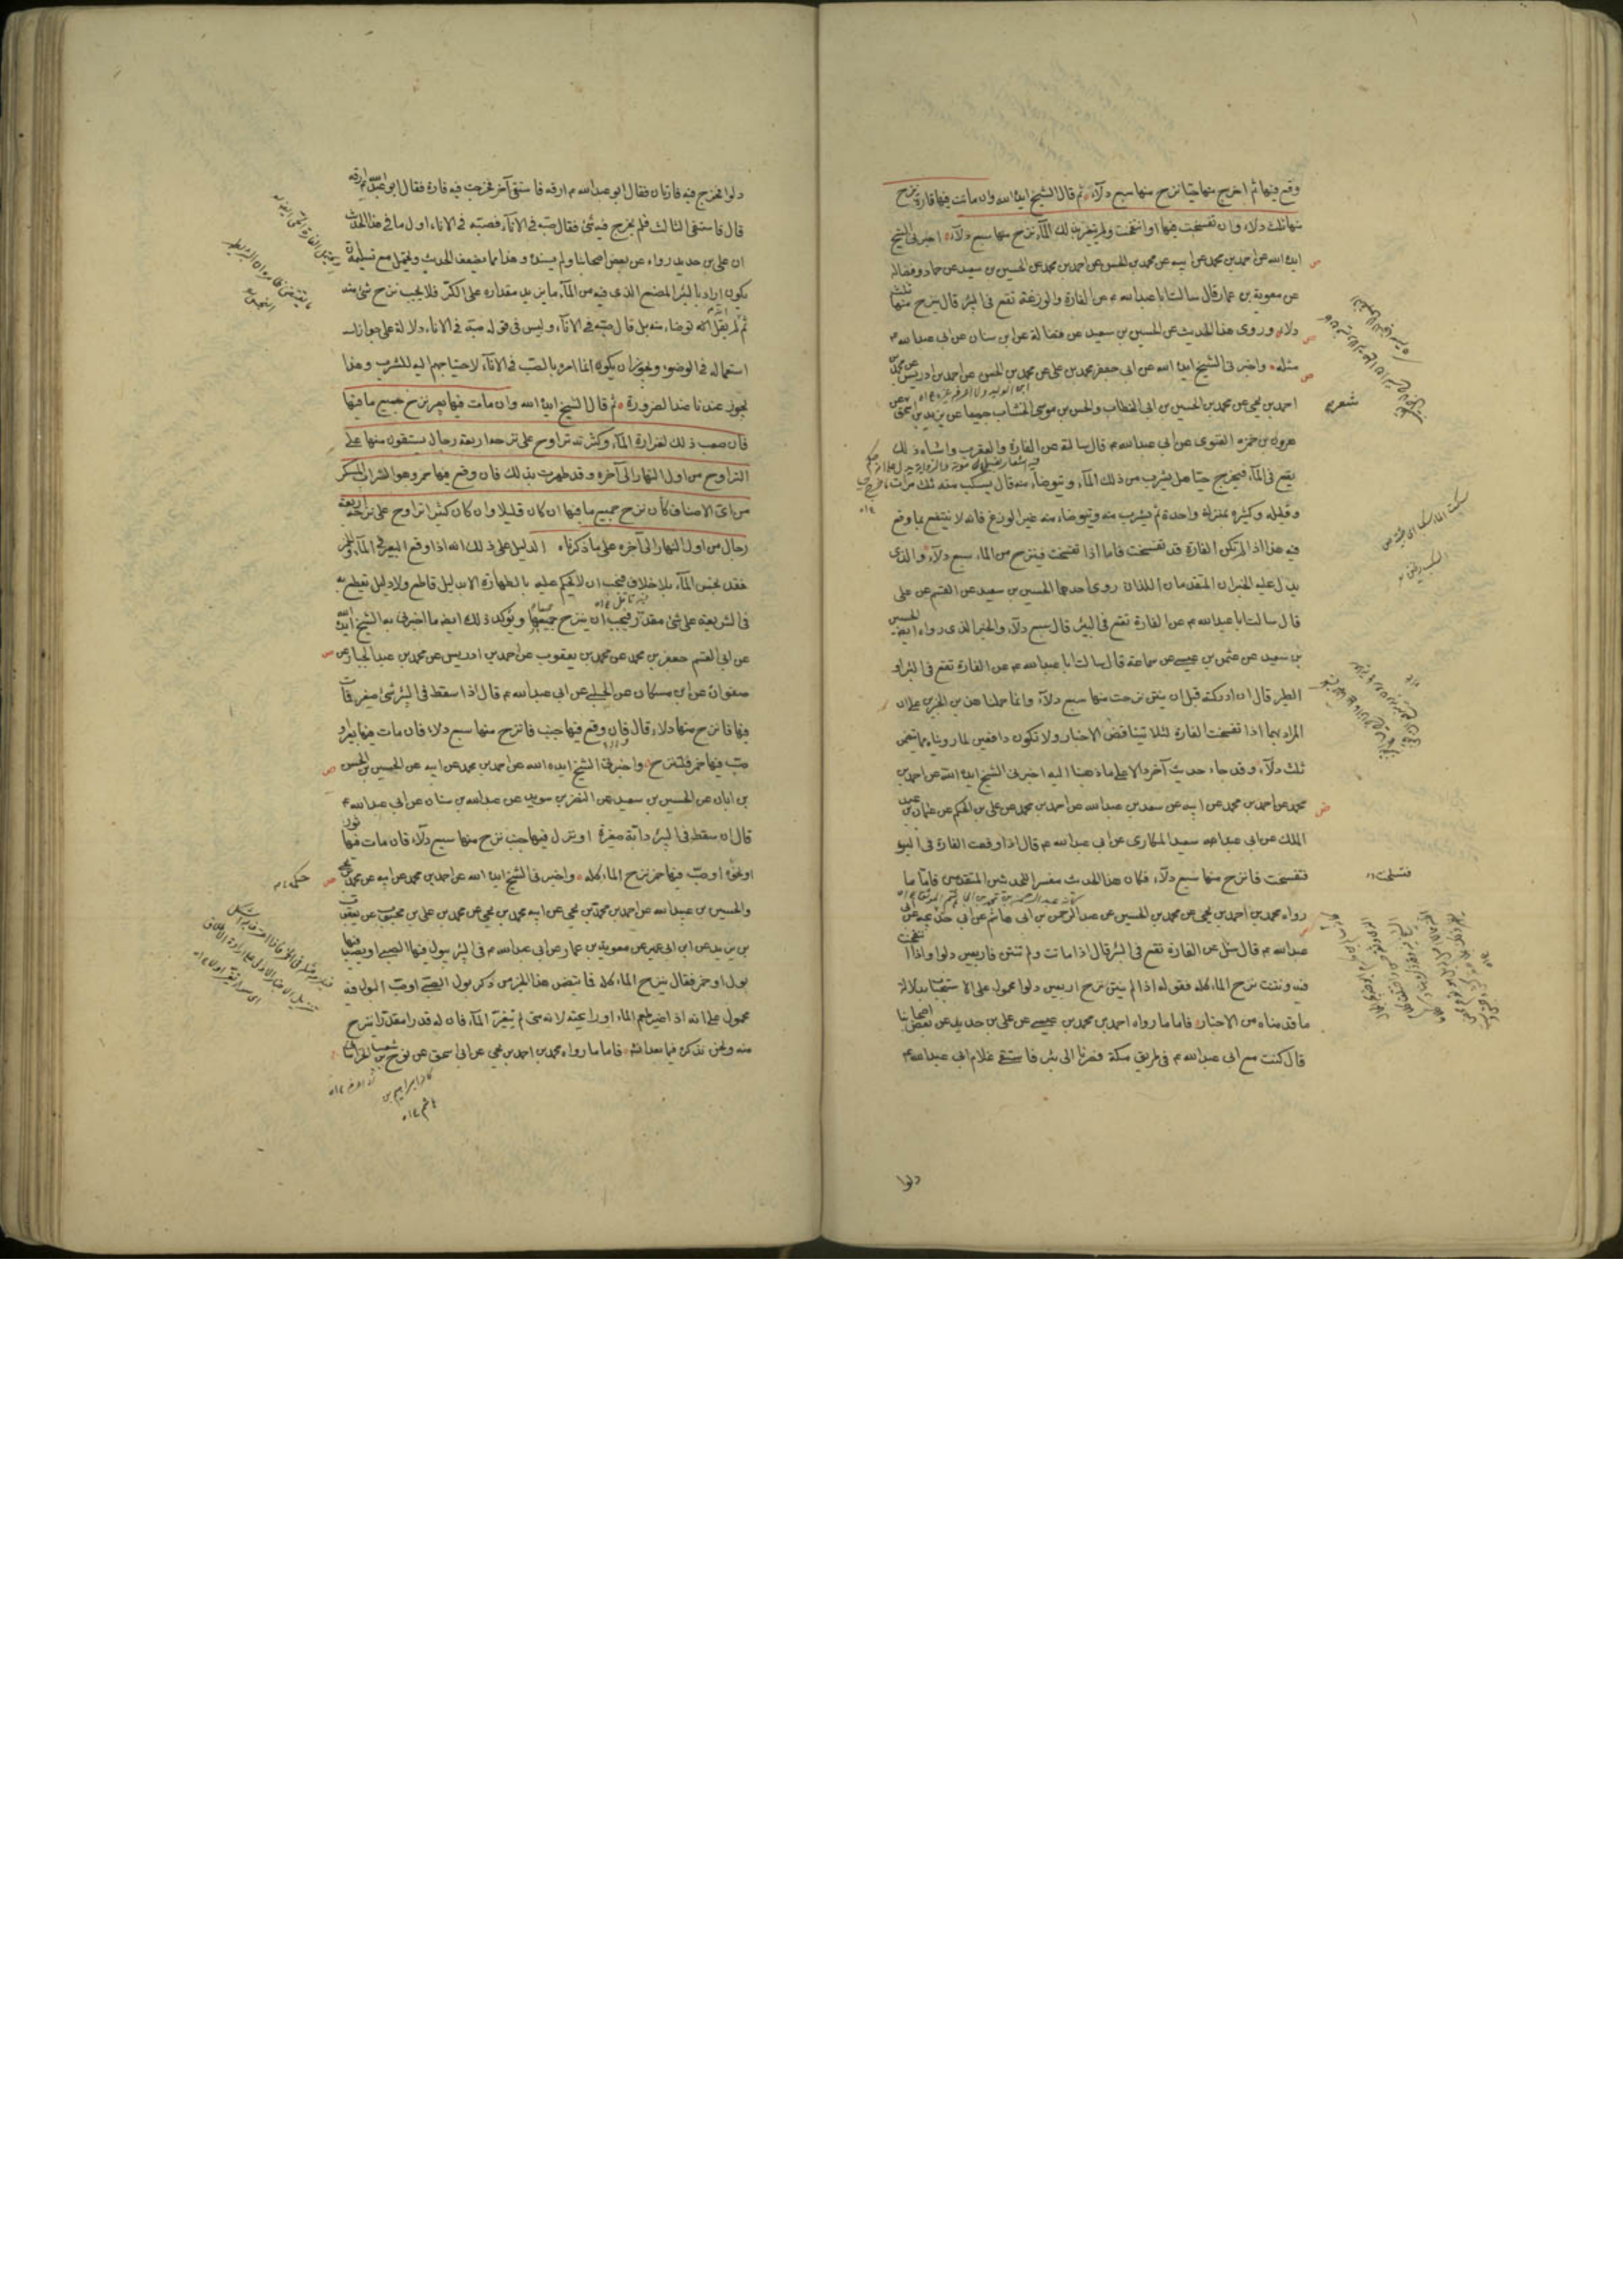 وقع فيها ثم اخرج منها حيا نزح منها سبع دلاء ثم قال الشيخ ايده الله وان ماتت فيها فارة نزح
منها ثلث دلاء وان تفسخت فيها او انتفخت ولم يتغير بذلك الماء نزح منها سبع دلاء اخبرني الشيخ
ايده الله عن احمد بن محمد عن ابيه عن محمد بن الحسن عن احمد بن محمد عن الحسين بن سعيد عن حماد وفضالة
عن معوية بن عمار قال سالت ابا عبد الله ع عن الفارة والوزغة تقع في البئر قال ينزح منها ثلث
دلاء وروى هذا الحديث عن الحسين بن سعيد عن فضالة عن ابن سنان عن ابي عبد الله ع
مثله واخبرني الشيخ ايده الله عن ابي جعفر محمد بن علي عن محمد بن الحسن عن احمد بن ادريس عن محمد بن
احمد بن يحيى عن محمد بن الحسين بن ابي الخطاب والحسن بن موسى الخشاب جميعا عن يزيد بن اسحق
هرون بن حمزة الغنوي عن ابي عبد الله ع قال سالته عن الفارة والعقرب واشباه ذلك
يقع في الماء فيخرج حيا هل يشرب من ذلك الماء ويتوضاء منه قال يسكب منه ثلث مرات
وقليله وكثيره بمنزلة واحدة ثم يشرب منه ويتوضاء منه غير الوزغ فانه لا ينتفع بما وقع
فيه هذا اذا لم تكن الفارة قد تفسخت فاما اذا تفسخت فينزح من الماء سبع دلاء والذي
يدل عليه الخبران المتقدمان اللذان روى احدهما الحسين بن سعيد عن القسم عن علي
قال سالت ابا عبد الله ع عن الفارة تقع في البئر قال سبع دلاء والخبر الذي رواه ايضا الحسين
بن سعيد عن عثمن بن عيسى عن سماعة قال سالت ابا عبد الله ع عن الفارة تقع في البئر او
الطير قال ان ادركته قبل ان ينتن نزحت منها سبع دلاء وانما حملنا هذين الخبرين على ان
المراد بهما اذا تفسخت الفارة لئلا تتناقض الاخبار ولا نكون دافعين لما رويناه مما يتضمن
ثلث دلاء وقد جاء حديث آخر دالا على ما ذهبنا اليه اخبرني الشيخ ايده الله عن احمد بن
محمد عن احمد بن محمد عن ابيه عن سعد بن عبد الله عن احمد بن محمد عن علي بن الحكم عن عثمان بن عبد
الملك عن ابي سعيد المكاري عن ابي عبد الله ع قال اذا وقعت الفارة في البئر
فتفسخت فانزح منها سبع دلاء فكان هذا الحديث مفسرا للحديثين المتقدمين فاما ما
رواه محمد بن احمد بن يحيى عن محمد بن الحسين عن عبد الرحمن بن ابي هاشم عن ابي خديجة عن ابي
عبد الله ع قال سئل عن الفارة تقع في البئر قال اذا ماتت ولم تنتن فاربعين دلوا واذا انتفخت
فيه ونتنت نزح الماء كله فقوله اذا لم ينتن نزح اربعين دلوا محمول على الاستحباب بدلالة
ما قدمناه من الاخبار فاما ما رواه احمد بن محمد بن عيسى عن علي بن حديد عن بعض اصحابنا
قال كنت مع ابي عبد الله ع في طريق مكة فصرنا الى بئر فاستقى غلام ابي عبد الله ع
دلوا
شعر
فتسلخت
دلوا فخرج فيه فارتان فقال ابو عبد الله ع ارقه فاستقى آخر فخرجت فيه فارة فقال ابو عبد الله ع ارقه
قال فاستقى الثالث فلم يخرج فيه شئ فقال صبه في الاناء فصبه في الاناء اول ما في هذا الحديث
ان علي بن حديد رواه عن بعض اصحابنا ولم يسنده وهذا مما يضعف الحديث ويحتمل مع تسليمه ان
يكون اراد بالبئر المصنع الذي فيه من الماء ما يزيد مقداره على الكر فلا يجب نزح شئ منه
ثم لم يقل انه توضاء منه بل قال صبه في الاناء وليس في قوله صبه في الاناء دلالة على جواز
استعماله في الوضوء ويجوز ان يكون انما امره بالصب في الاناء لاحتياجهم اليه للشرب وهذا
يجوز عندنا عند الضرورة ثم قال الشيخ ايده الله وان مات فيها بعير نزح جميع ما فيها
فان صعب ذلك لغزارة الماء وكثرته تراوح على نزحه اربعة رجال يستقون منها على
التراوح من اول النهار الى آخره وقد طهرت بذلك فان وقع فيها خمر وهو الشراب المسكر
من اي الاصناف كان نزح جميع ما فيها ان كان قليلا وان كان كثيرا تراوح على نزحه اربعة
رجال من اول النهار الى آخره على ما ذكرناه الدليل على ذلك انه اذا وقع البعير في الماء والخمر
فقد نجس الماء بلا خلاف فيجب ان لا يحكم عليه بالطهارة الا بدليل قاطع ولا دليل نقطع به
في الشريعة على شئ مقدر فيجب ان ينزح جميعها ويؤكد ذلك ايضا ما اخبرني به الشيخ ايده الله
عن ابي القسم جعفر بن محمد عن محمد بن يعقوب عن احمد بن ادريس عن محمد بن عبد الجبار عن
صفوان عن ابن مسكان عن الحلبي عن ابي عبد الله ع قال اذا سقط في البئر شئ صغير فمات
فيها فانزح منها دلاء قال فان وقع فيها جنب فانزح منها سبع دلاء فان مات فيها بعير او
صب فيها خمر فلتنزح واخبرني الشيخ ايده الله عن احمد بن محمد عن ابيه عن الحسين بن الحسن
بن ابان عن الحسين بن سعيد عن النضر بن سويد عن عبد الله بن سنان عن ابي عبد الله ع
قال ان سقط في البئر دابة صغيرة او نزل فيها جنب نزح منها سبع دلاء فان مات فيها ثور
او نحوه او صب فيها خمر نزح الماء كله واخبرني الشيخ ايده الله عن احمد بن محمد عن ابيه عن محمد بن يحيى
والحسين بن عبيد الله عن احمد بن محمد بن يحيى عن ابيه محمد بن يحيى عن محمد بن علي بن محبوب عن يعقوب
بن يزيد عن ابن ابي عمير عن معوية بن عمار عن ابي عبد الله ع في البئر يبول فيها الصبي او يصب فيها
بول او خمر فقال ينزح الماء كله فما يتضمن هذا الخبر من ذكر بول الصبي او صب البول فيه
محمول على انه اذا اغير طعم الماء او رايحته لانه متى لم يتغير الماء فان له قدرا مقدرا ينزح
منه ونحن نذكره فيما بعد انشاء الله فاما ما رواه محمد بن احمد بن يحيى عن ابي اسحق عن نوح بن شعيب الخراساني